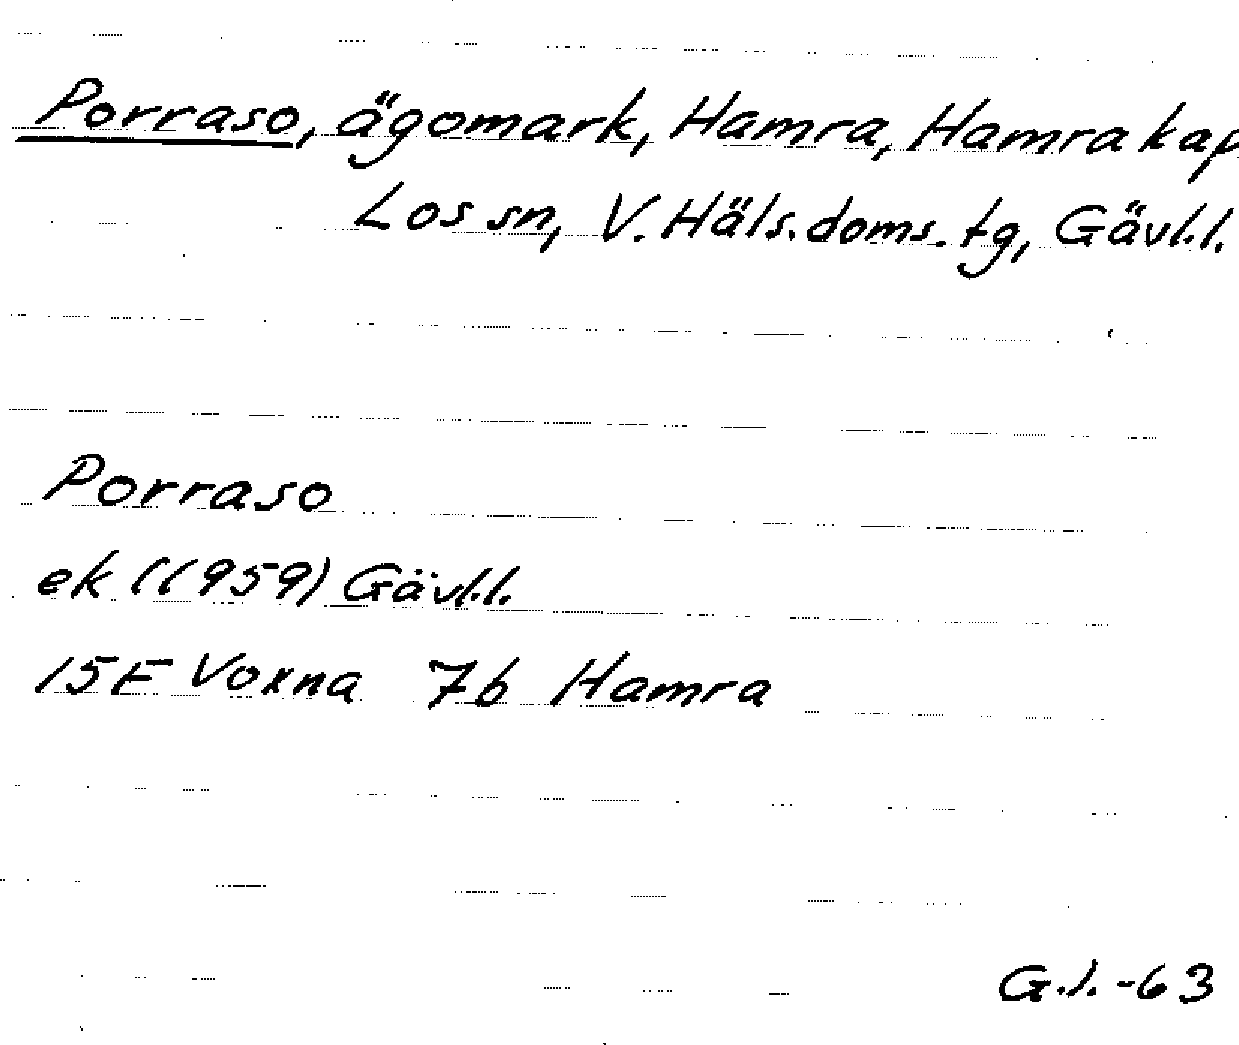 Porraso, ägomark, Hamra, Hamra kap
Los sn, V. Häls. doms. tg, Gävl.l.
Porraso
ek (1959) Gävl.l.
15E Voxna 7b Hamra
G.l. -63